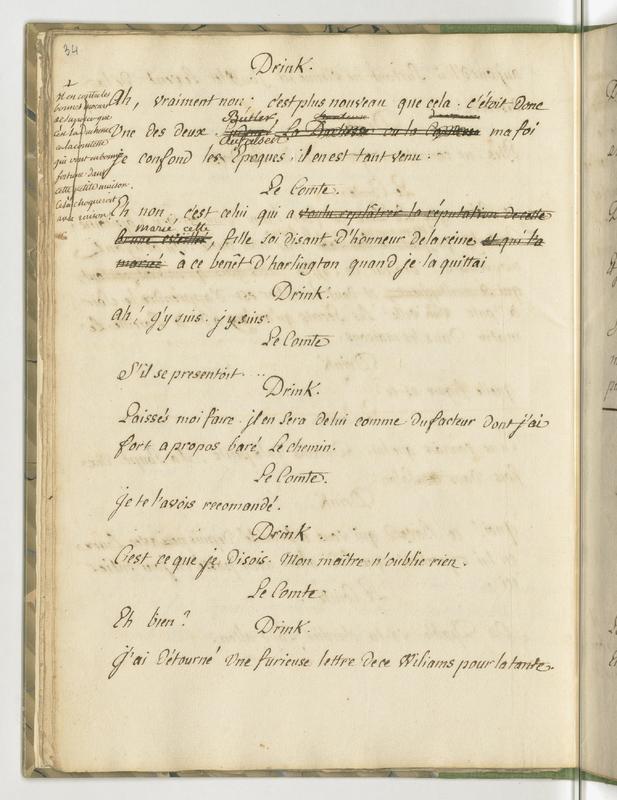 34
Drink.
+
il en coute les
bonnes moeurs
de supposer que
c'est la duchesse
ou la comtesse
qui vont en bonne
fortune dans
cette petite maison.
cela choqueroit
avec raison.
Ah, vraiment non; c'est plus nouveau que cela. c'étoit donc
Butler,
Une des deux. La ou la ma foi
je confond les Epoques; il en est tant venu.
Le Comte.
Eh non, c'est celui qui a voulu replâtrer la réputation de cette
Marie celle
brune, fille soi disant d'honneur de la reine et qui l'a
mariée à ce benêt d'harlington quand je la quittai
Drink.
Ah! j'y suis. j'y suis.
Le Comte
S'il se presentoit...
Drink.
Laissés moi faire. il en sera de lui comme du facteur dont j'ai
fort apropos baré Le chemin.
Le Comte.
je te l'avois recomandé.
Drink
C'est ce que je disois. Mon maître n'oublie rien.
Le Comte
Eh bien?
Drink.
J'ai détourné Une furieuse lettre de ce Wiliams pour la tante.